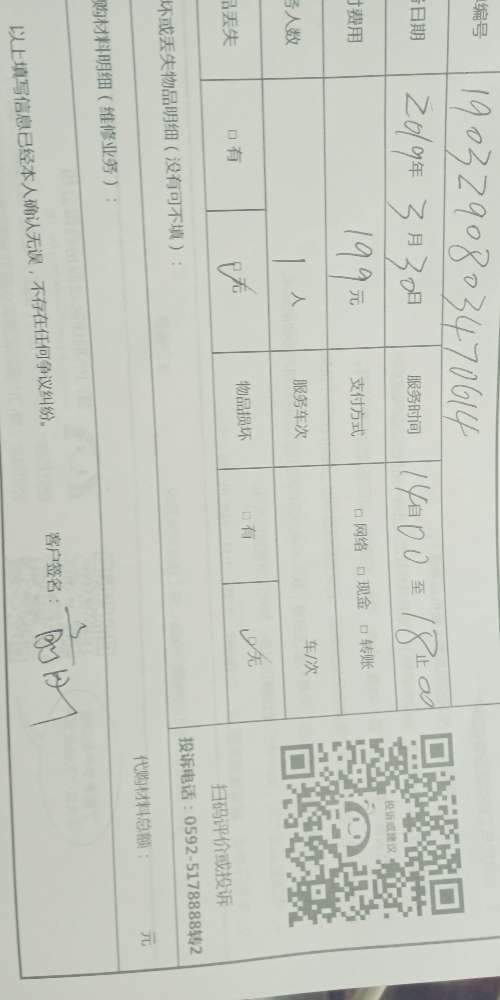 编号 190329080347064
日期 2019年 3月30日 服务时间 14自00 至 18止00
费用 199元 支付方式 □ 网络 □ 现金 □ 转账
务人数 1 人 服务车次 车/次
品丢失 □ 有 □ 无 物品损坏 □ 有 □ 无
坏或丢失物品明细（没有可不填）：
购材料明细（维修业务）：
代购材料总额： 元
以上填写信息已经本人确认无误，不存在任何争议纠纷。
客户签名：
投诉或建议
扫码评价或投诉
投诉电话：0592-5178888转2